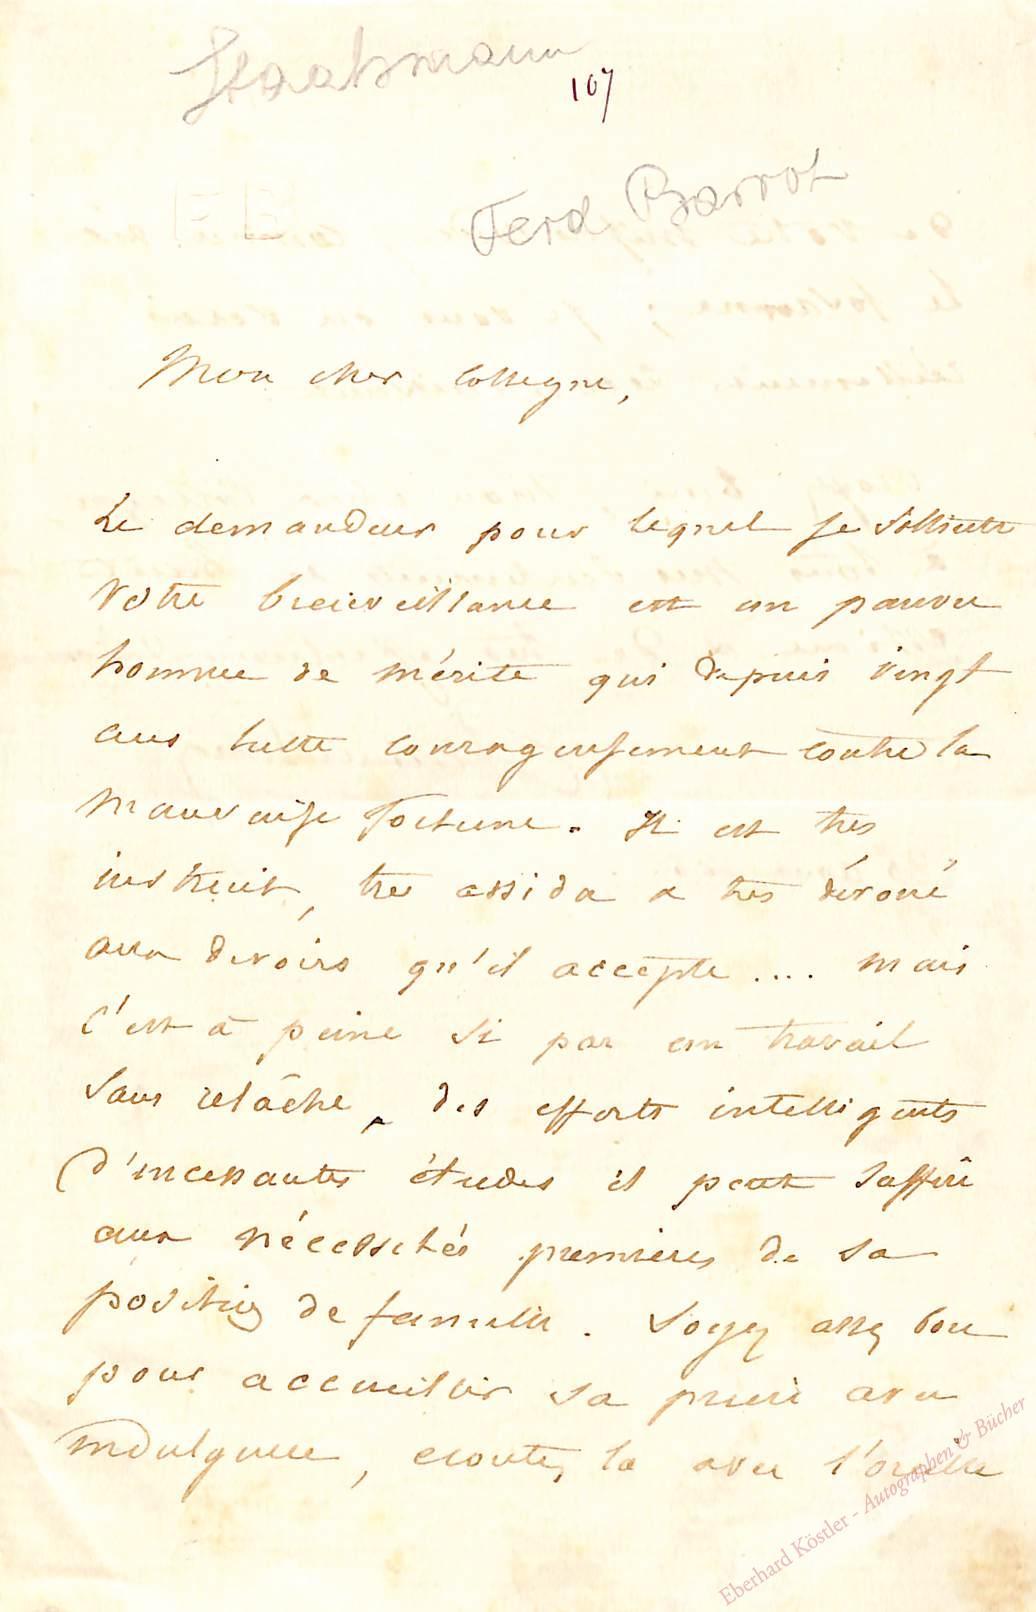 Staatsmann
107
Ferd Barrot
Mon cher Collegue,
Le demandeur pour lequel je sollicite
votre bienveillance est un pauvre
homme de mérite qui depuis vingt
ans lutte courageusement contre la
mauvaise fortune. Il est très
instruit, très assidu & très dévoué
aux devoirs qu'il accepte .... mais
c'est à peine si par un travail
sans relâche, des efforts intelligents
d'incessantes études il peut suffire
aux nécessités premieres de sa
position de famille. Soyez assez bon
pour accueillir sa priere avec
indulgence, ecoutez la avec l'oreille
Eberhard Köstler - Autographen & Bücher